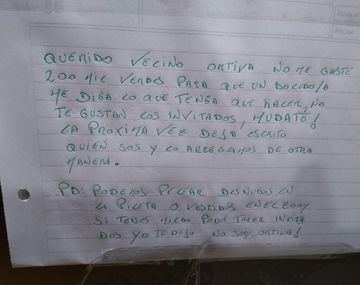 QUERIDO VECINO ORTIVA NO ME GASTÉ
200 MIL VERDES PARA QUE UN BOLUDO/A
ME DIGA LO QUE TENGA QUE HACER, NO
TE GUSTAN LOS INVITADOS, MUDATE!
LA PROXIMA VEZ DEJA ESCRITO
QUIEN SOS Y LO ARREGLAMOS DE OTRA
MANERA.
PD: PODEMOS PELEAR DESNUDOS EN
LA PILETA O VESTIDOS EN EL
SI TENES MICOS PODES TRAER INVITA
DOS YO TE DEJO NO SOY ORTIVA!
FECHA